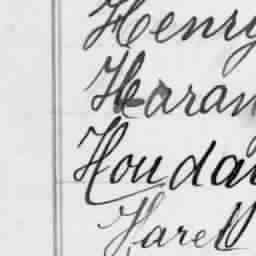 Henry
Haran
Houdai
Harell